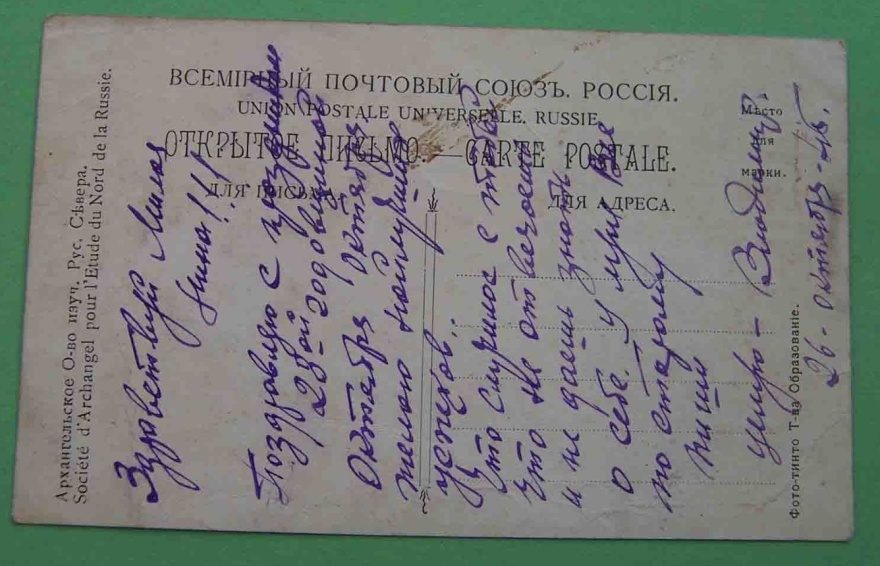 ВСЕМІРНЫЙ ПОЧТОВЫЙ СОЮЗЪ. РОССІЯ.
UNION POSTALE UNIVERSELLE. RUSSIE.
ОТКРЫТОЕ ПИСЬМО. — CARTE POSTALE.
ДЛЯ ПИСЬМА. ДЛЯ АДРЕСА.
Мѣсто
для
марки.
Архангельское О-во изуч. Рус. Сѣвера.
Société d'Archangel pour l'Etude du Nord de la Russie.
Здравствуй Милая
Нина!!!
Поздравляю с праздником
28ой годовщиной
Октября
Октября
желаю наилучших
успехов.
Что случилось с тобой
что не отвечаешь
и не даешь знать
о себе. У меня все
по старому
пиши
Владимир
26-октября-45.
Фото-тинто Т-ва Образованіе.